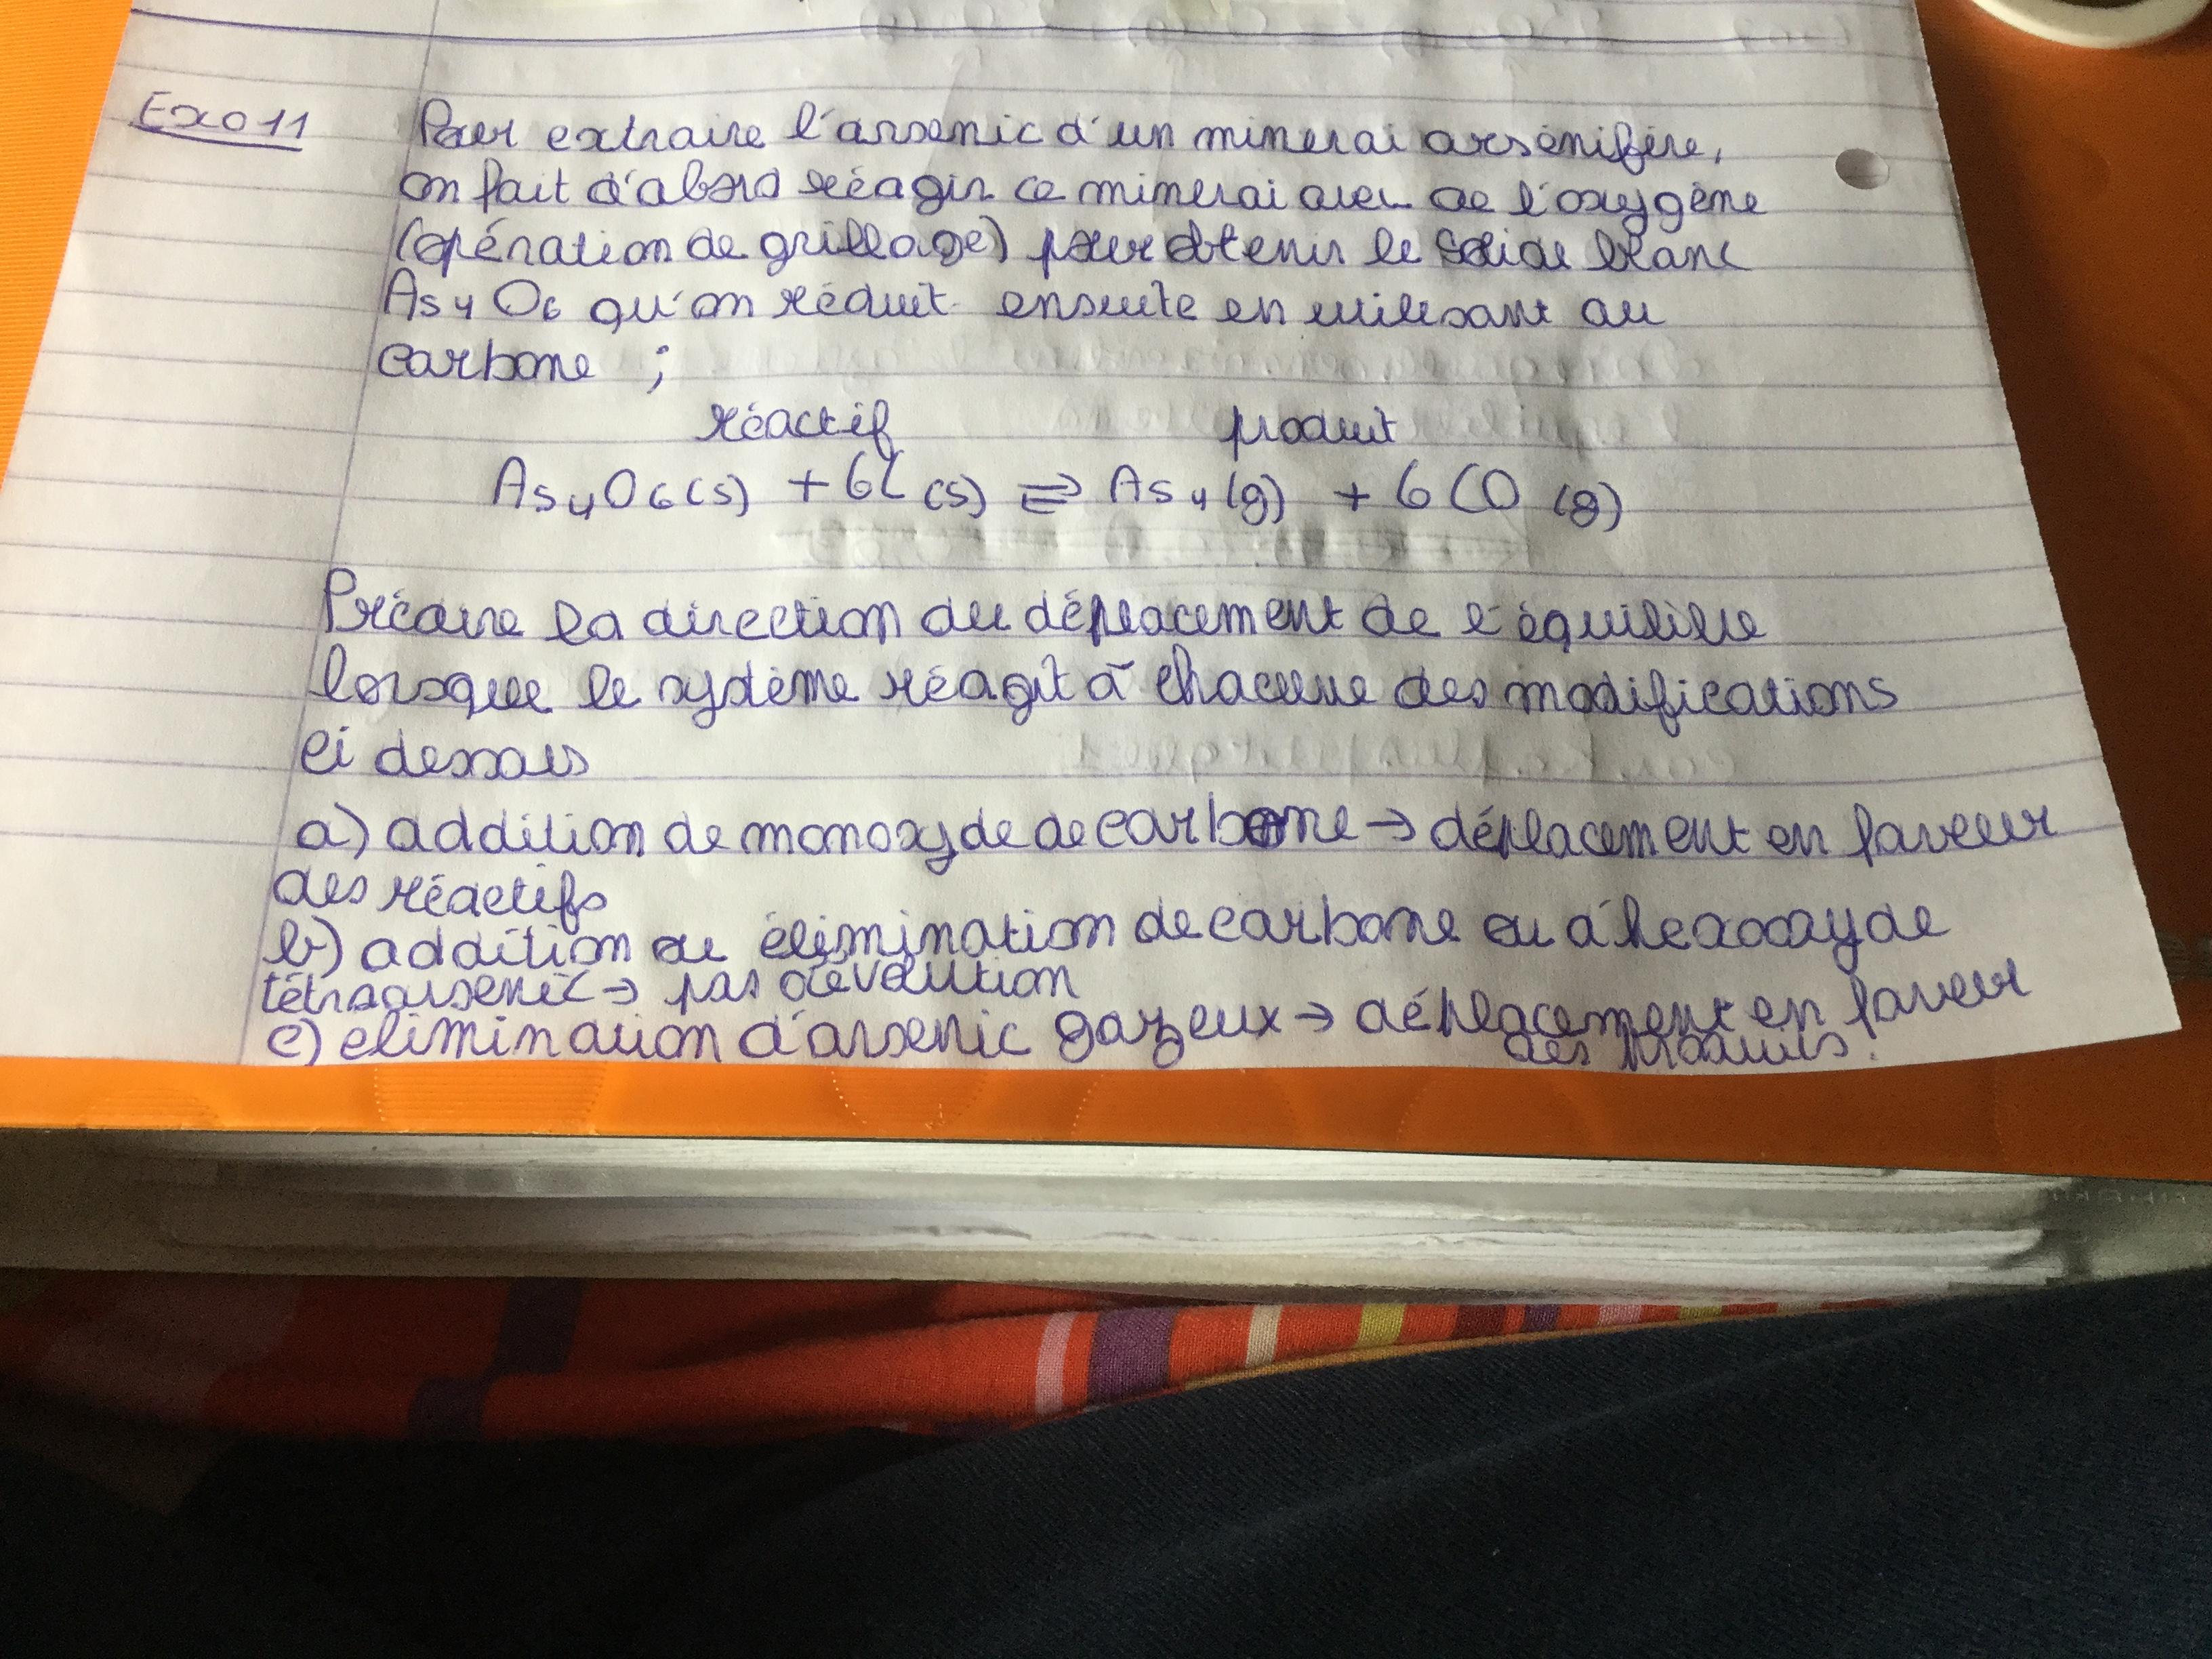 Exo 11 Pour extraire l'arsenic d'un minerai arsénifère,
on fait d'abord réagir ce minerai avec de l'oxygène
(opération de grillage) pour obtenir le solide blanc
As4O6 qu'on réduit ensuite en utilisant du
carbone ;
réactif produit
As4O6(s) + 6C(s) ⇌ As4(g) + 6CO(g)
Prédire la direction du déplacement de l'équilibre
lorsque le système réagit à chacune des modifications
ci dessous
a) addition de monoxyde de carbone → déplacement en faveur
des réactifs
b) addition ou élimination de carbone ou d'hexaoxyde
tétraarsenic → pas d'évolution
c) elimination d'arsenic gazeux → déplacement en faveur
des produits.